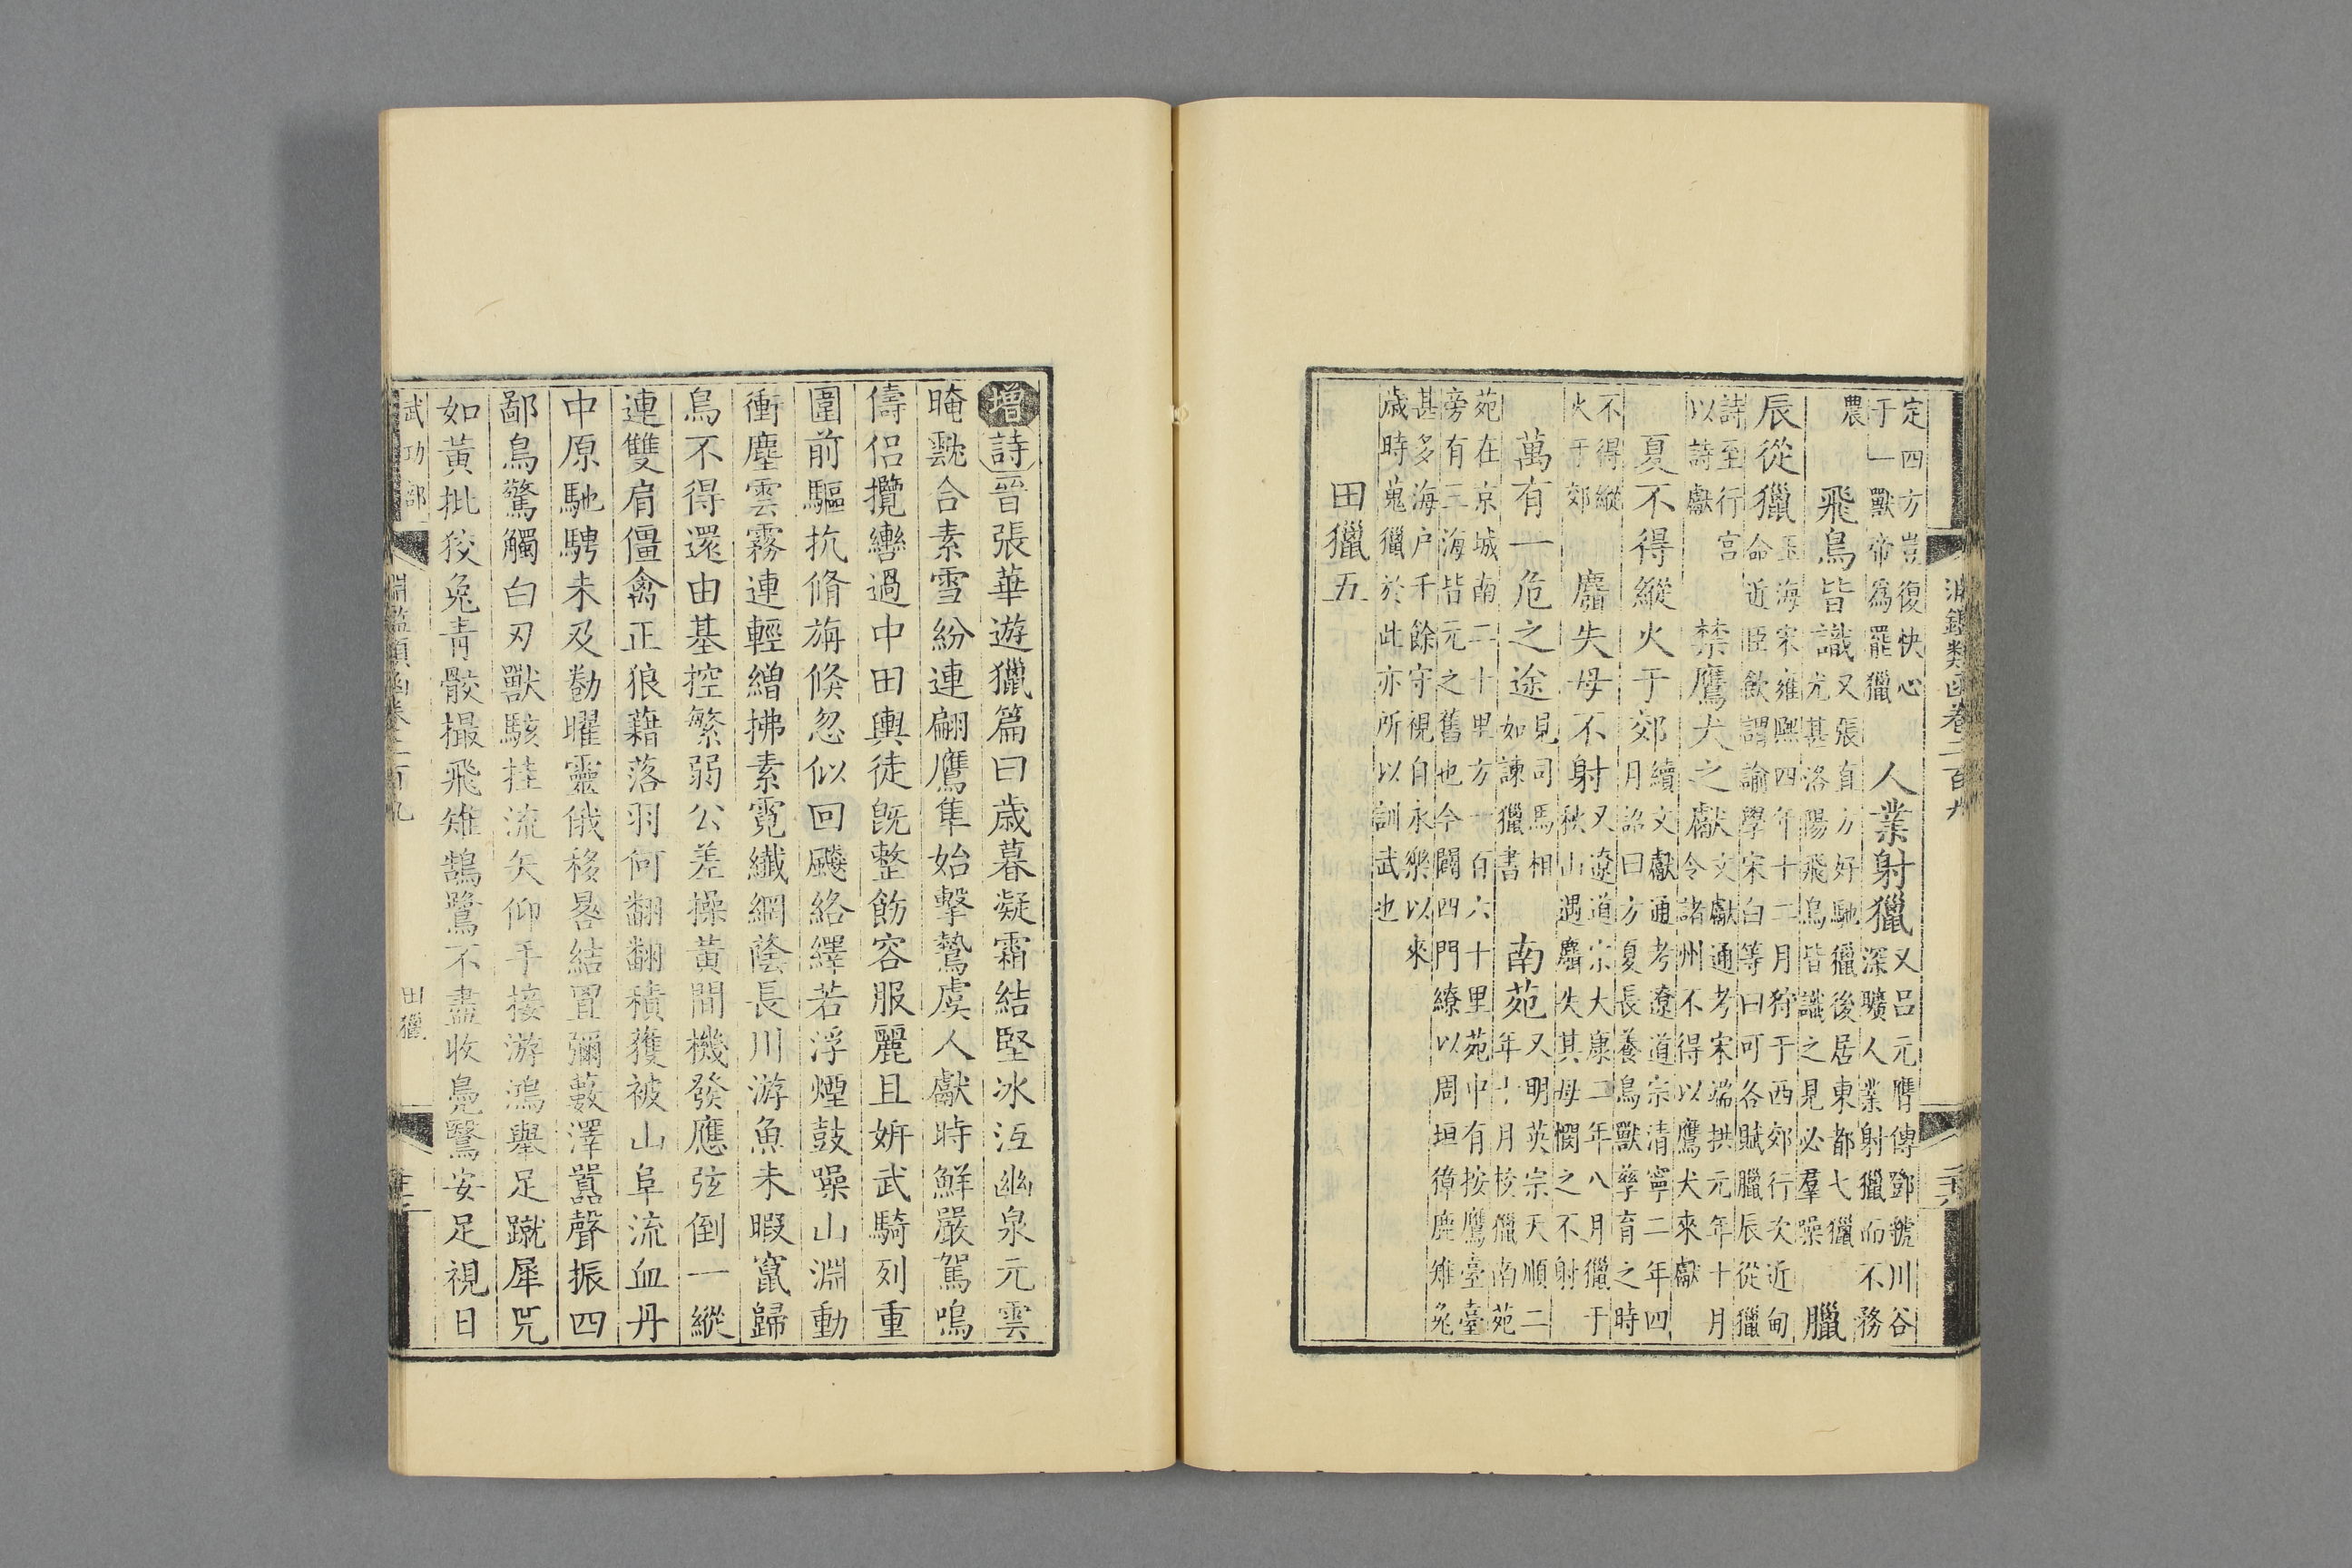 淵鑑類函卷二百九
定四方豈復快心
于一獸帝爲罷獵
人業射獵
又呂元膺傳鄧虢川谷
深曠人業射獵而不務
農
飛鳥皆識
又張直方好馳獵後居東都七獵
尤甚洛陽飛鳥皆識之見必羣噪
臘
辰從獵
玉海宋雍熙四年十二月狩于西郊行次近甸
命近臣飲謂諭學宋白等曰可各賦臘辰從獵
詩至行宮
以詩獻
禁鷹犬之獻
文獻通考宋端拱元年十月
令諸州不得以鷹犬來獻
夏不得縱火于郊
續文獻通考遼道宗清寧二年四
月詔曰方夏長養鳥獸孳育之時
不得縱
火于郊
麛失母不射
又遼道宗大康二年八月獵于
秋山遇麛失其母憫之不射
萬有一危之途
見司馬相
如諫獵書
南苑
又明英宗天順二
年十月校獵南苑
苑在京城南二十里方一百六十里苑中有按鷹臺臺
旁有三海皆元之舊也今闢四門繚以周垣獐鹿雉兔
甚多海户千餘守視自永樂以來
歲時蒐獵於此亦所以訓武也
田獵五
增詩晉張華遊獵篇曰歲暮凝霜結堅冰沍幽泉元雲
晻靉合素雪紛連翩鷹隼始擊鷙虞人獻時鮮嚴駕鳴
儔侶攬轡過中田輿徒旣整飭容服麗且姸武騎列重
圍前驅抗脩旃倏忽似回飈絡繹若浮煙鼓噪山淵動
衝塵雲霧連輕繒拂素霓纖網蔭長川游魚未暇竄歸
鳥不得還由基控繁弱公差操黃間機發應弦倒一縱
連雙肩僵禽正狼藉落羽何翻翻積獲被山阜流血丹
中原馳騁未及勌曜靈俄移晷結罝彌藪澤囂聲振四
鄙鳥驚觸白刃獸駭挂流矢仰手接游鴻舉足蹴犀兕
如黃批狡兔青骹撮飛雉鵠鷺不盡收鳧鷖安足視日
武功部
淵鑑類函卷二百九
田獵